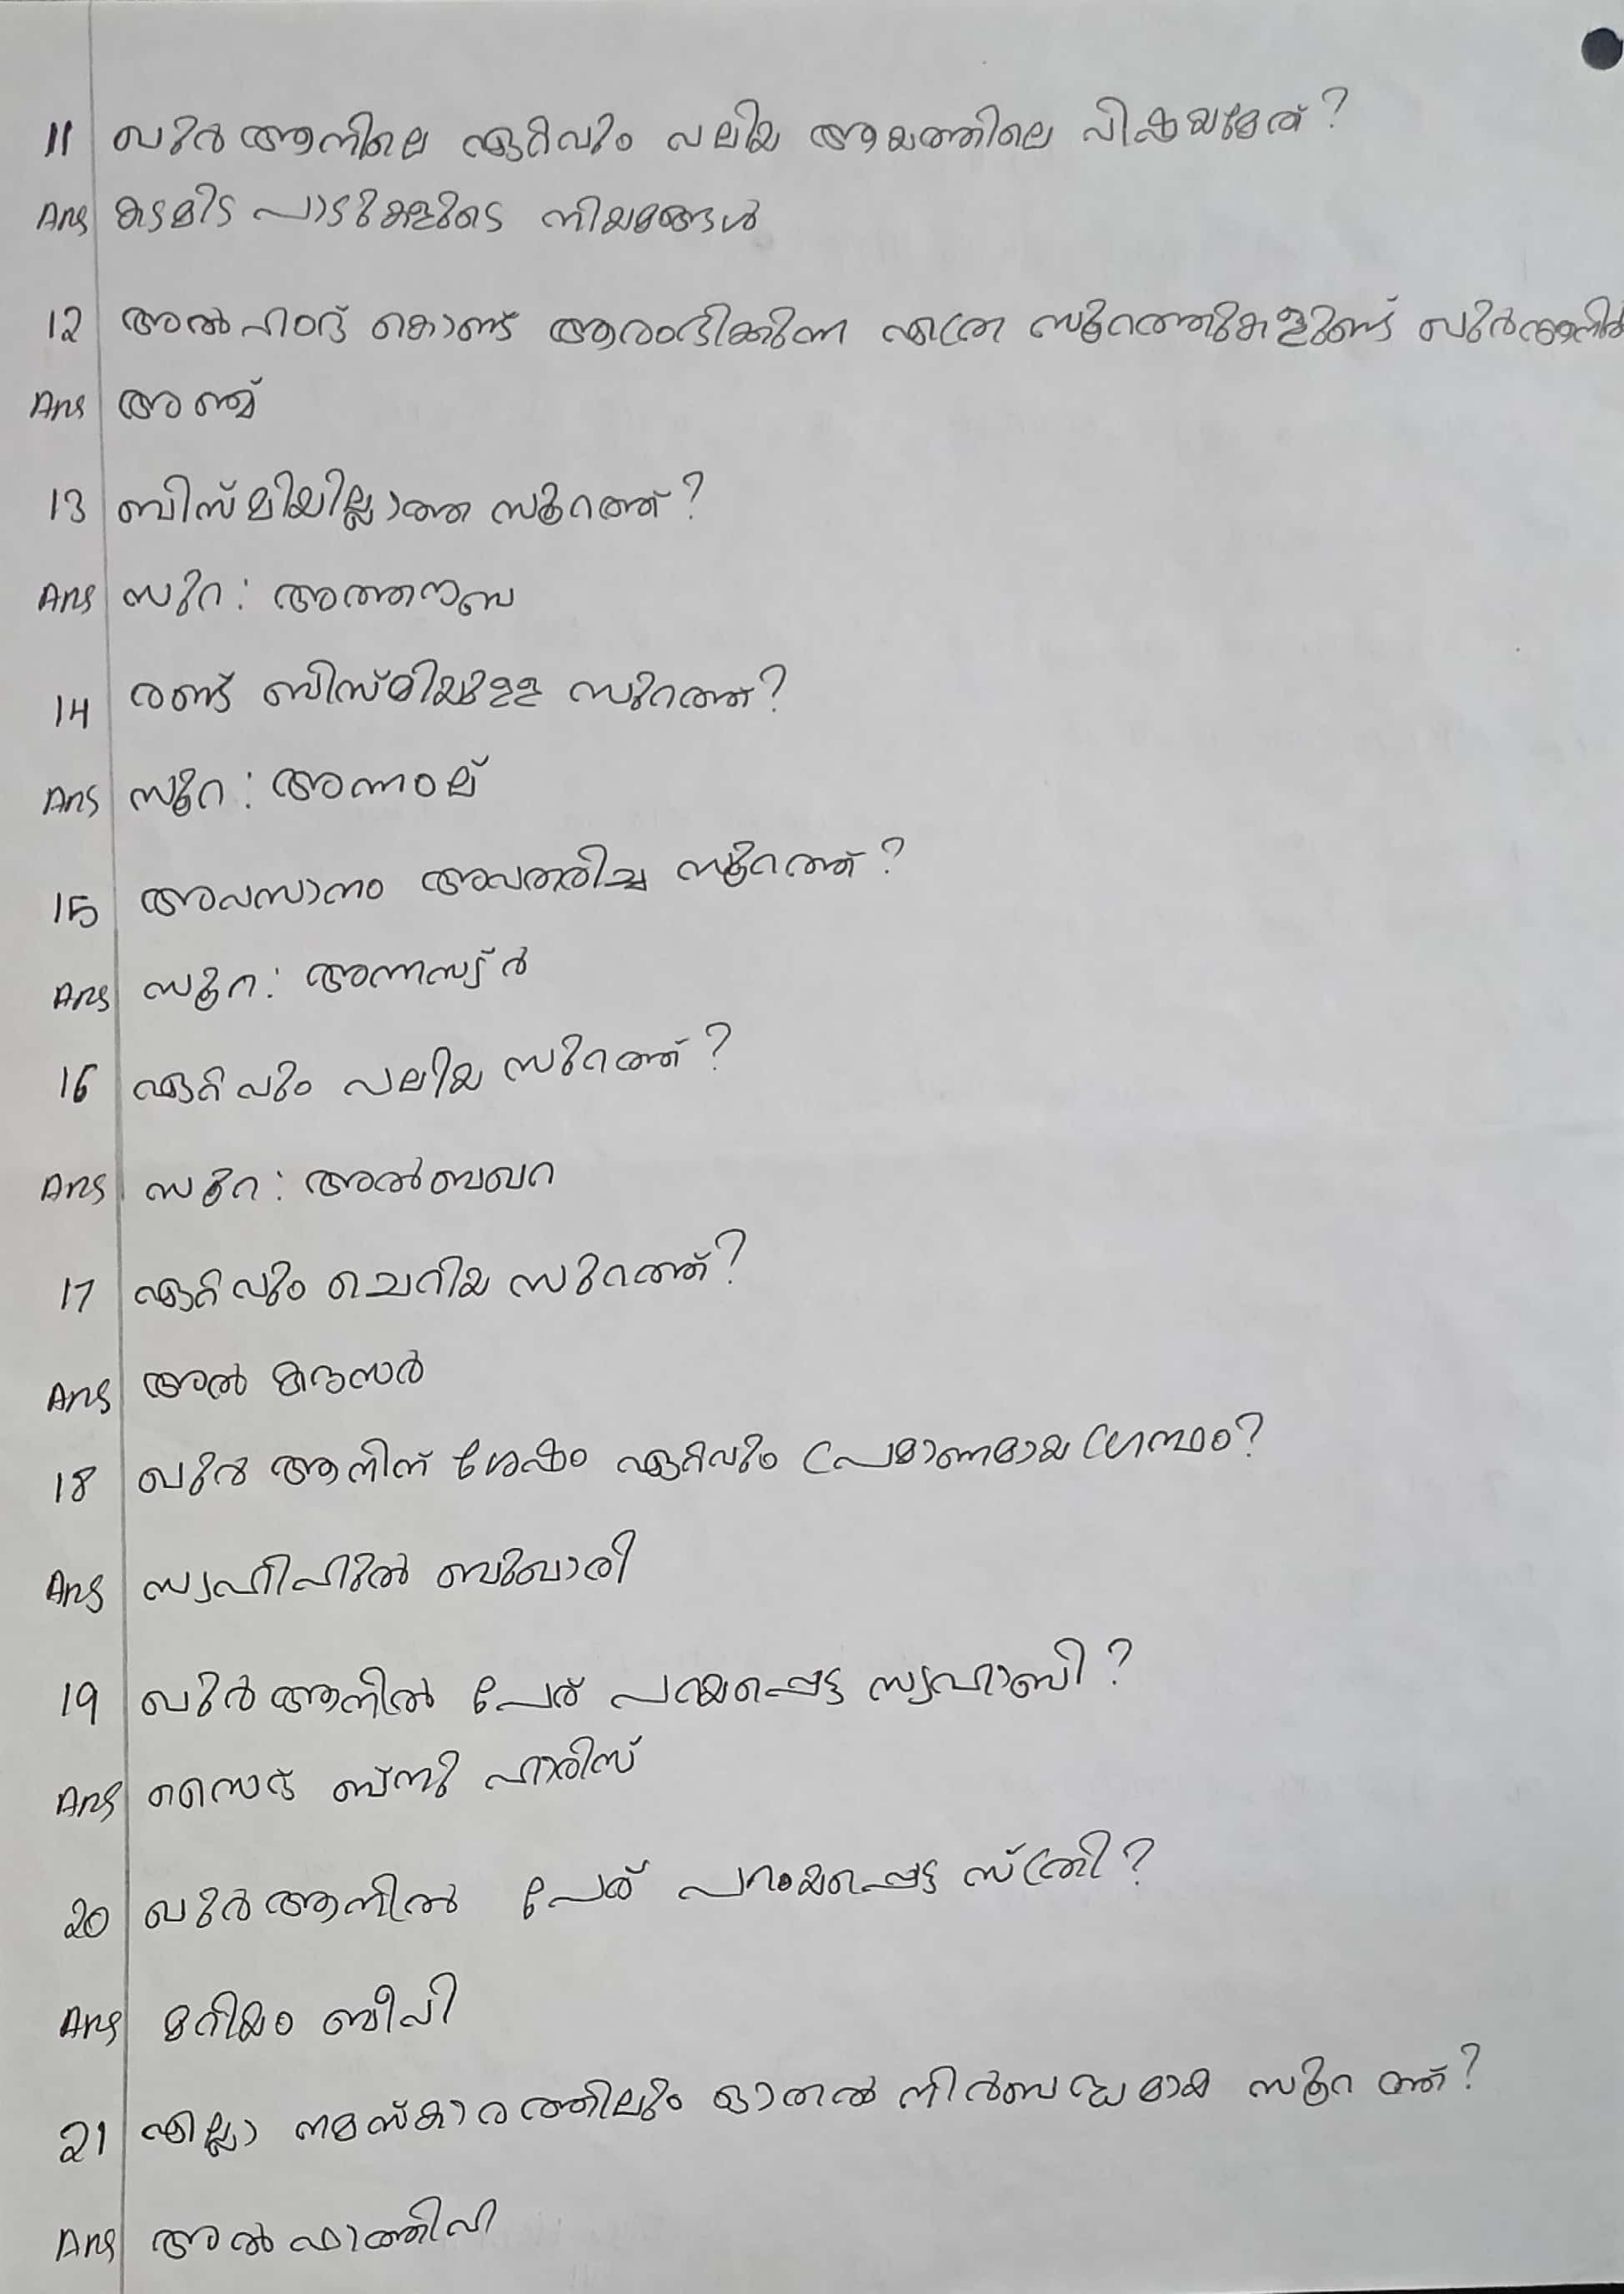 11 ഖുർആനിലെ ഏറ്റവും വലിയ ആയത്തിലെ വിഷയമേത്?
Ans കടമിടപാടുകളുടെ നിയമങ്ങൾ
12 അൽഹംദ് കൊണ്ട് ആരംഭിക്കുന്ന എത്ര സൂറത്തുകളുണ്ട് ഖുർആനിൽ
Ans അഞ്ച്
13 ബിസ്മിയില്ലാത്ത സൂറത്ത്?
Ans സൂറ: അത്തൗബ
14 രണ്ട് ബിസ്മിയുള്ള സൂറത്ത്?
Ans സൂറ: അന്നംല്
15 അവസാനം അവതരിച്ച സൂറത്ത്?
Ans സൂറ: അന്നസ്വ്ർ
16 ഏറ്റവും വലിയ സൂറത്ത്?
Ans സൂറ: അൽബഖറ
17 ഏറ്റവും ചെറിയ സൂറത്ത്?
Ans അൽ കൗസർ
18 ഖുർആനിന് ശേഷം ഏറ്റവും പ്രമാണമായ ഗ്രന്ഥം?
Ans സ്വഹീഹുൽ ബുഖാരി
19 ഖുർആനിൽ പേര് പറയപ്പെട്ട സ്വഹാബി?
Ans സൈദ് ബ്നു ഹാരിസ്
20 ഖുർആനിൽ പേര് പറയപ്പെട്ട സ്ത്രി?
Ans മറിയം ബീവി
21 എല്ലാ നമസ്കാരത്തിലും ഓതൽ നിർബന്ധമായ സൂറത്ത്?
Ans അൽ ഫാത്തിഹ